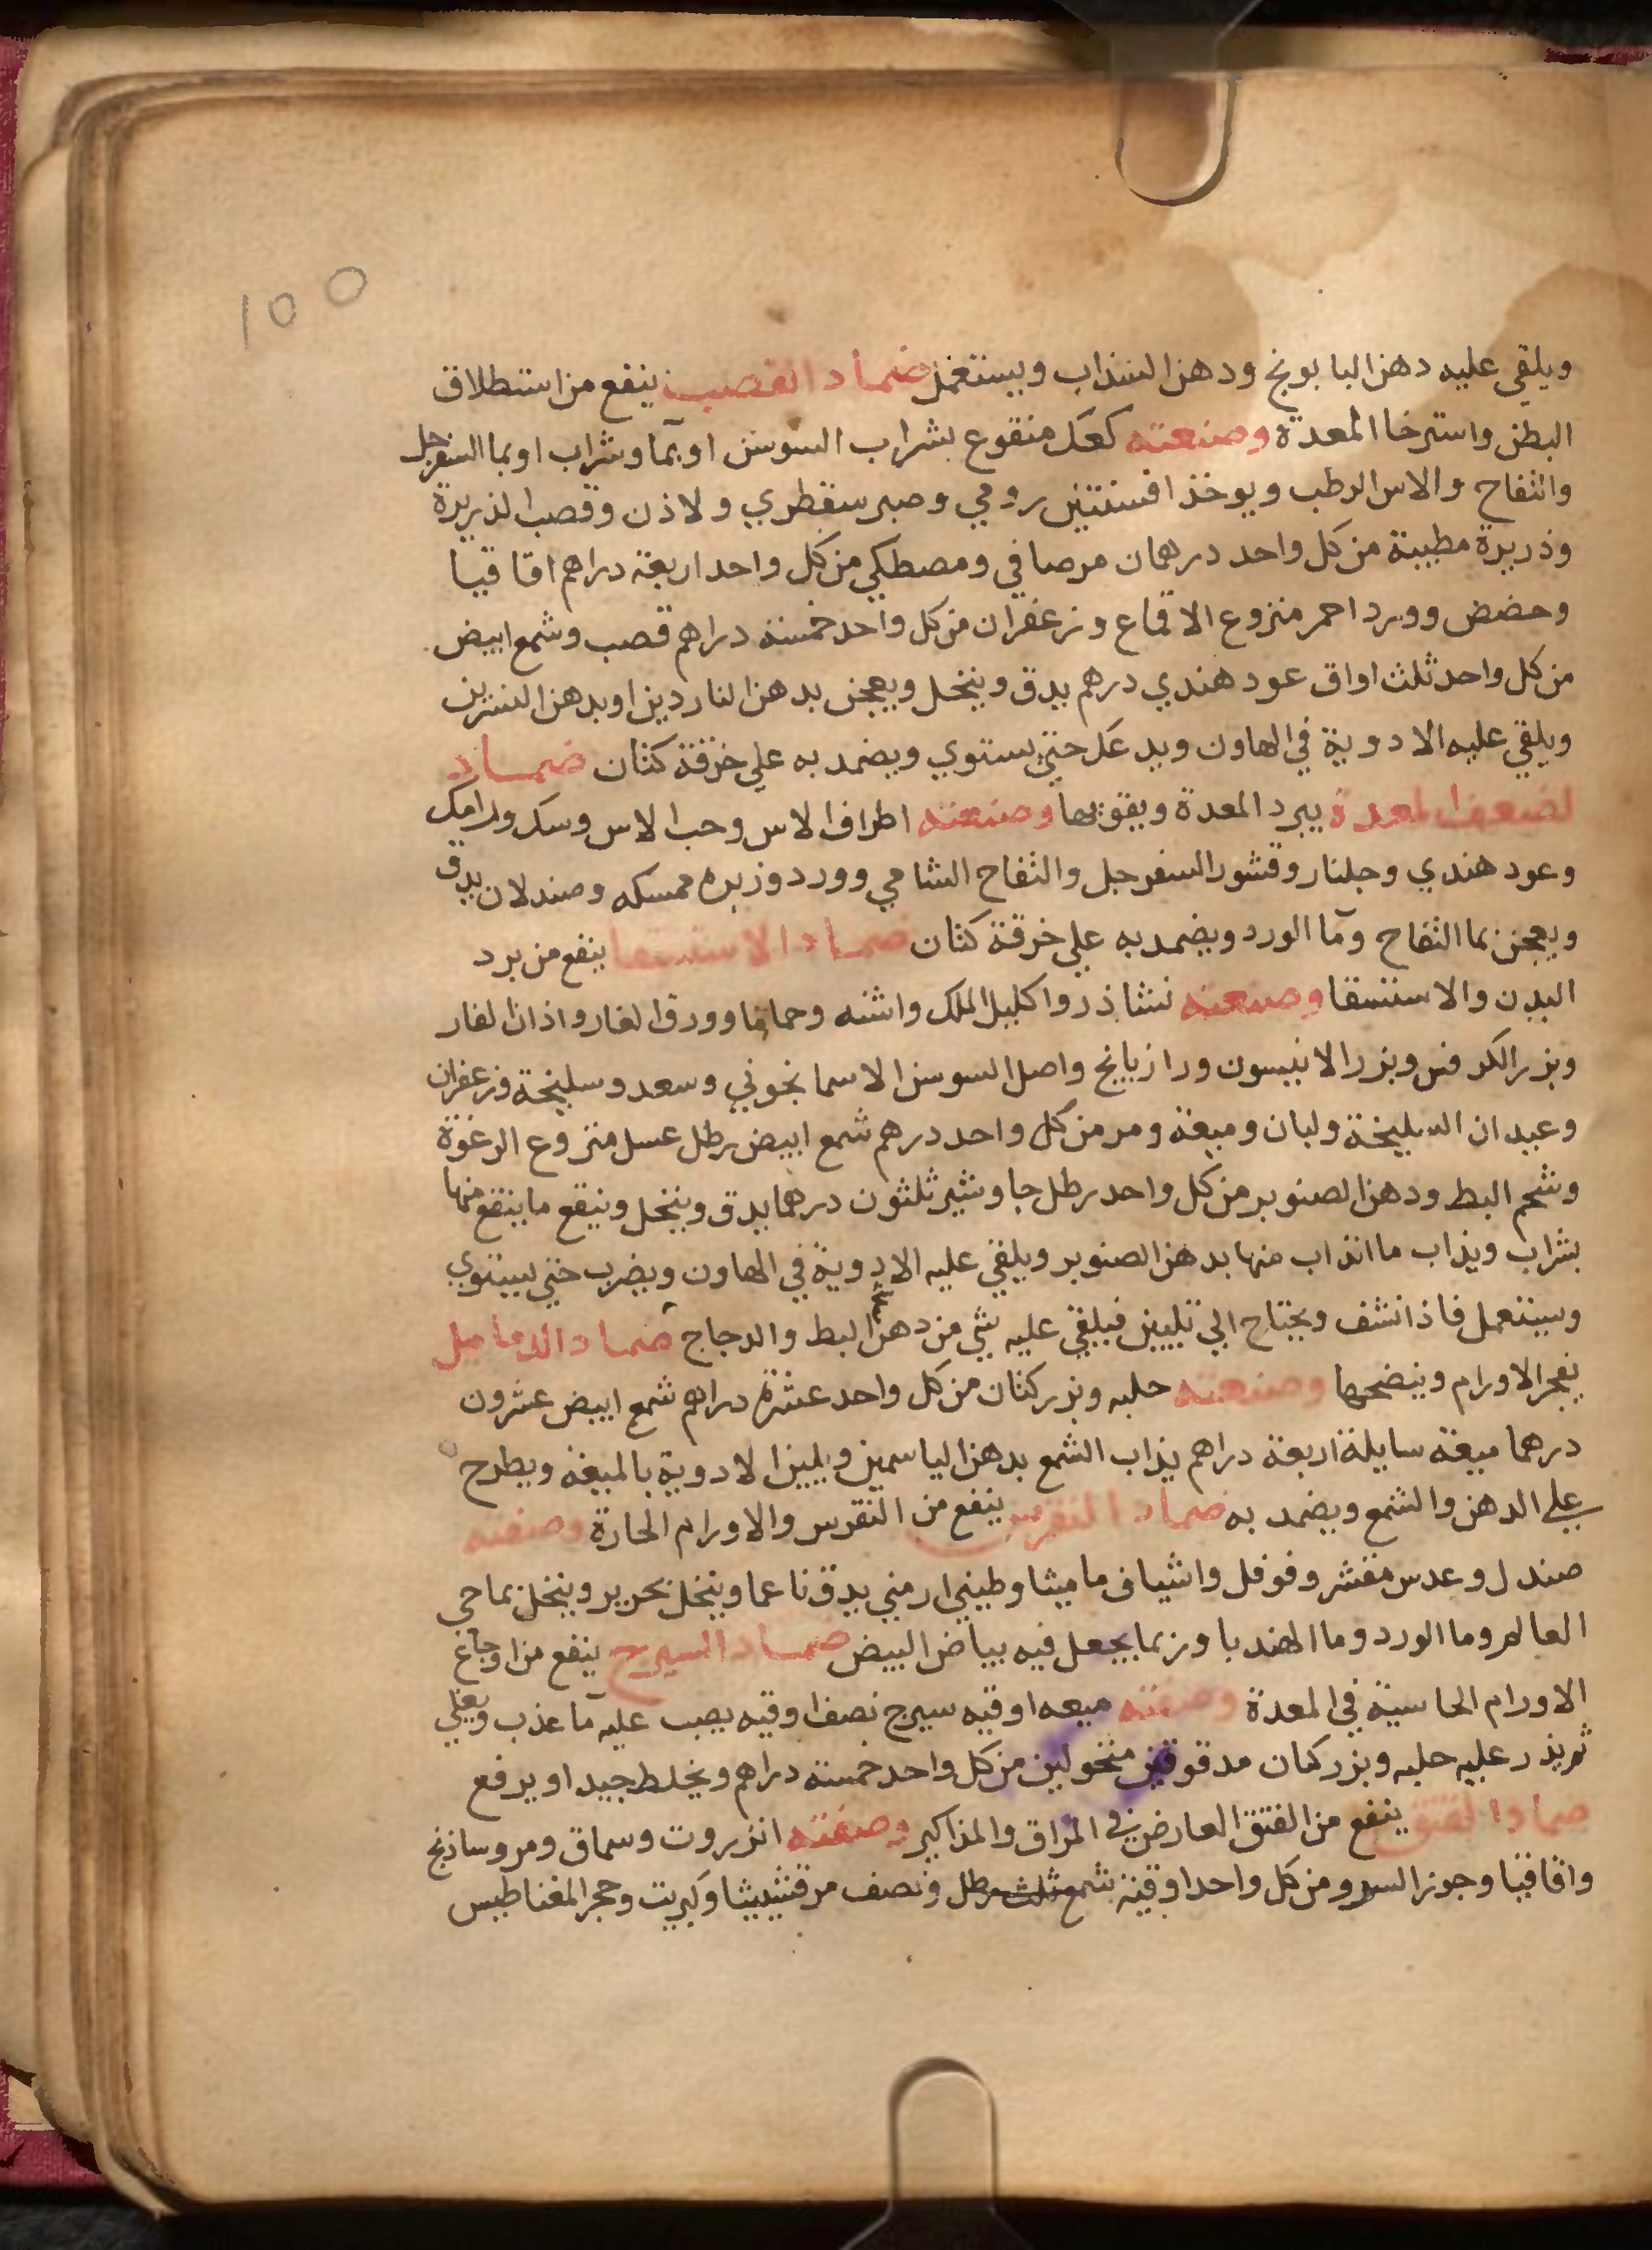 100
ويلقي عليه دهن البابونج ودهن السذاب ويستعمل ضماد القصب ينفع من استطلاق
البطن واسترخا المعدة وصنعته كعك منقوع بشراب السوسن او بمآ وشراب او بما السفرجل
والتفاح والاس الرطب ويوخذ افسنتين رومي وصبر سقطري ولاذن وقصب الذريرة
وذريرة مطيبة من كل واحد درهمان مر صافي ومصطكي من كل واحد اربعة دراهم اقاقيا
وحضض وورد احمر منزوع الاقماع وزعفران من كل واحد خمسة دراهم قصب وشمع ابيض
من كل واحد ثلث اواق عود هندي درهم يدق وينخل ويعجن بدهن الناردين او بدهن النسرين
ويلقي عليه الادوية في الهاون ويدعك حتي يستوي ويضمد به علي خرقة كتان ضماد
لضعف المعدة يبرد المعدة ويقويها وصنعته اطراف الاس وحب الاس وسك ورامك
وعود هندي وجلنار وقشور السفرجل والتفاح الشامي وورد وزيره ممسكه وصندلان يدق
ويعجن بما التفاح ومآ الورد ويضمد به علي خرقة كتان ضماد الاستسقا ينفع من برد
البدن والاستسقا وصنعته نشاذر واكليل الملك واشنه وحماما وورق الغار واذان الفار
وبزر الكرفس وبزر الانيسون ورازيانج واصل السوسن الاسمانجوني وسعد وسليخة وزعفران
وعيدان السليخة ولبان وميعة ومر من كل واحد درهم شمع ابيض رطل عسل منزوع الرغوة
وشحم البط ودهن الصنوبر من كل واحد رطل جاوشير ثلثون درهما يدق وينخل وينقع ما ينتقع منها
بشراب ويذاب ما انذاب منها بدهن الصنوبر ويلقي عليه الادوية في الهاون ويضرب حتي يستوي
ويستعمل فاذا نشف ويحتاج الي تليين فيلقي عليه شي من دهن البط والدجاج ضماد الدماميل
يفجر الاورام وينضجها وصنعته حلبه وبزر كتان من كل واحد عشرة دراهم شمع ابيض عشرون
درهما ميعة سايلة اربعة دراهم يذاب الشمع بدهن الياسمين ويليين الادوية بالميعة ويطرح
علي الدهن والشمع ويضمد به ضماد النقرس ينفع من النقرس والاورام الحارة وصنعته
صندل وعدس مقشر وفوفل واشياف ماميثا وطين ارمني يدق ناعما وينخل بحرير وينخل بما حي
العالم وما الورد وما الهندبا وربما يجعل فيه بياض البيض ضماد السيرج ينفع من اوجاع
الاورام الحاسية في المعدة وصنعته ميعه اوقيه سيرج نصف اوقيه يصب عليه مآ عذب ويغلي
ثم يذر عليه حلبه وبزر كتان مدقوقين منخولين من كل واحد خمسة دراهم ويخلط جيدا ويرفع
ضماد الفتق ينفع من الفتق العارض في المراق والمذاكير وصنعته انزروت وسماق ومر وساذنج
واقاقيا وجوز السرو من كل واحد اوقية شمع ثلث رطل ونصف مرقشيثا وكبريت وحجر المغناطيس